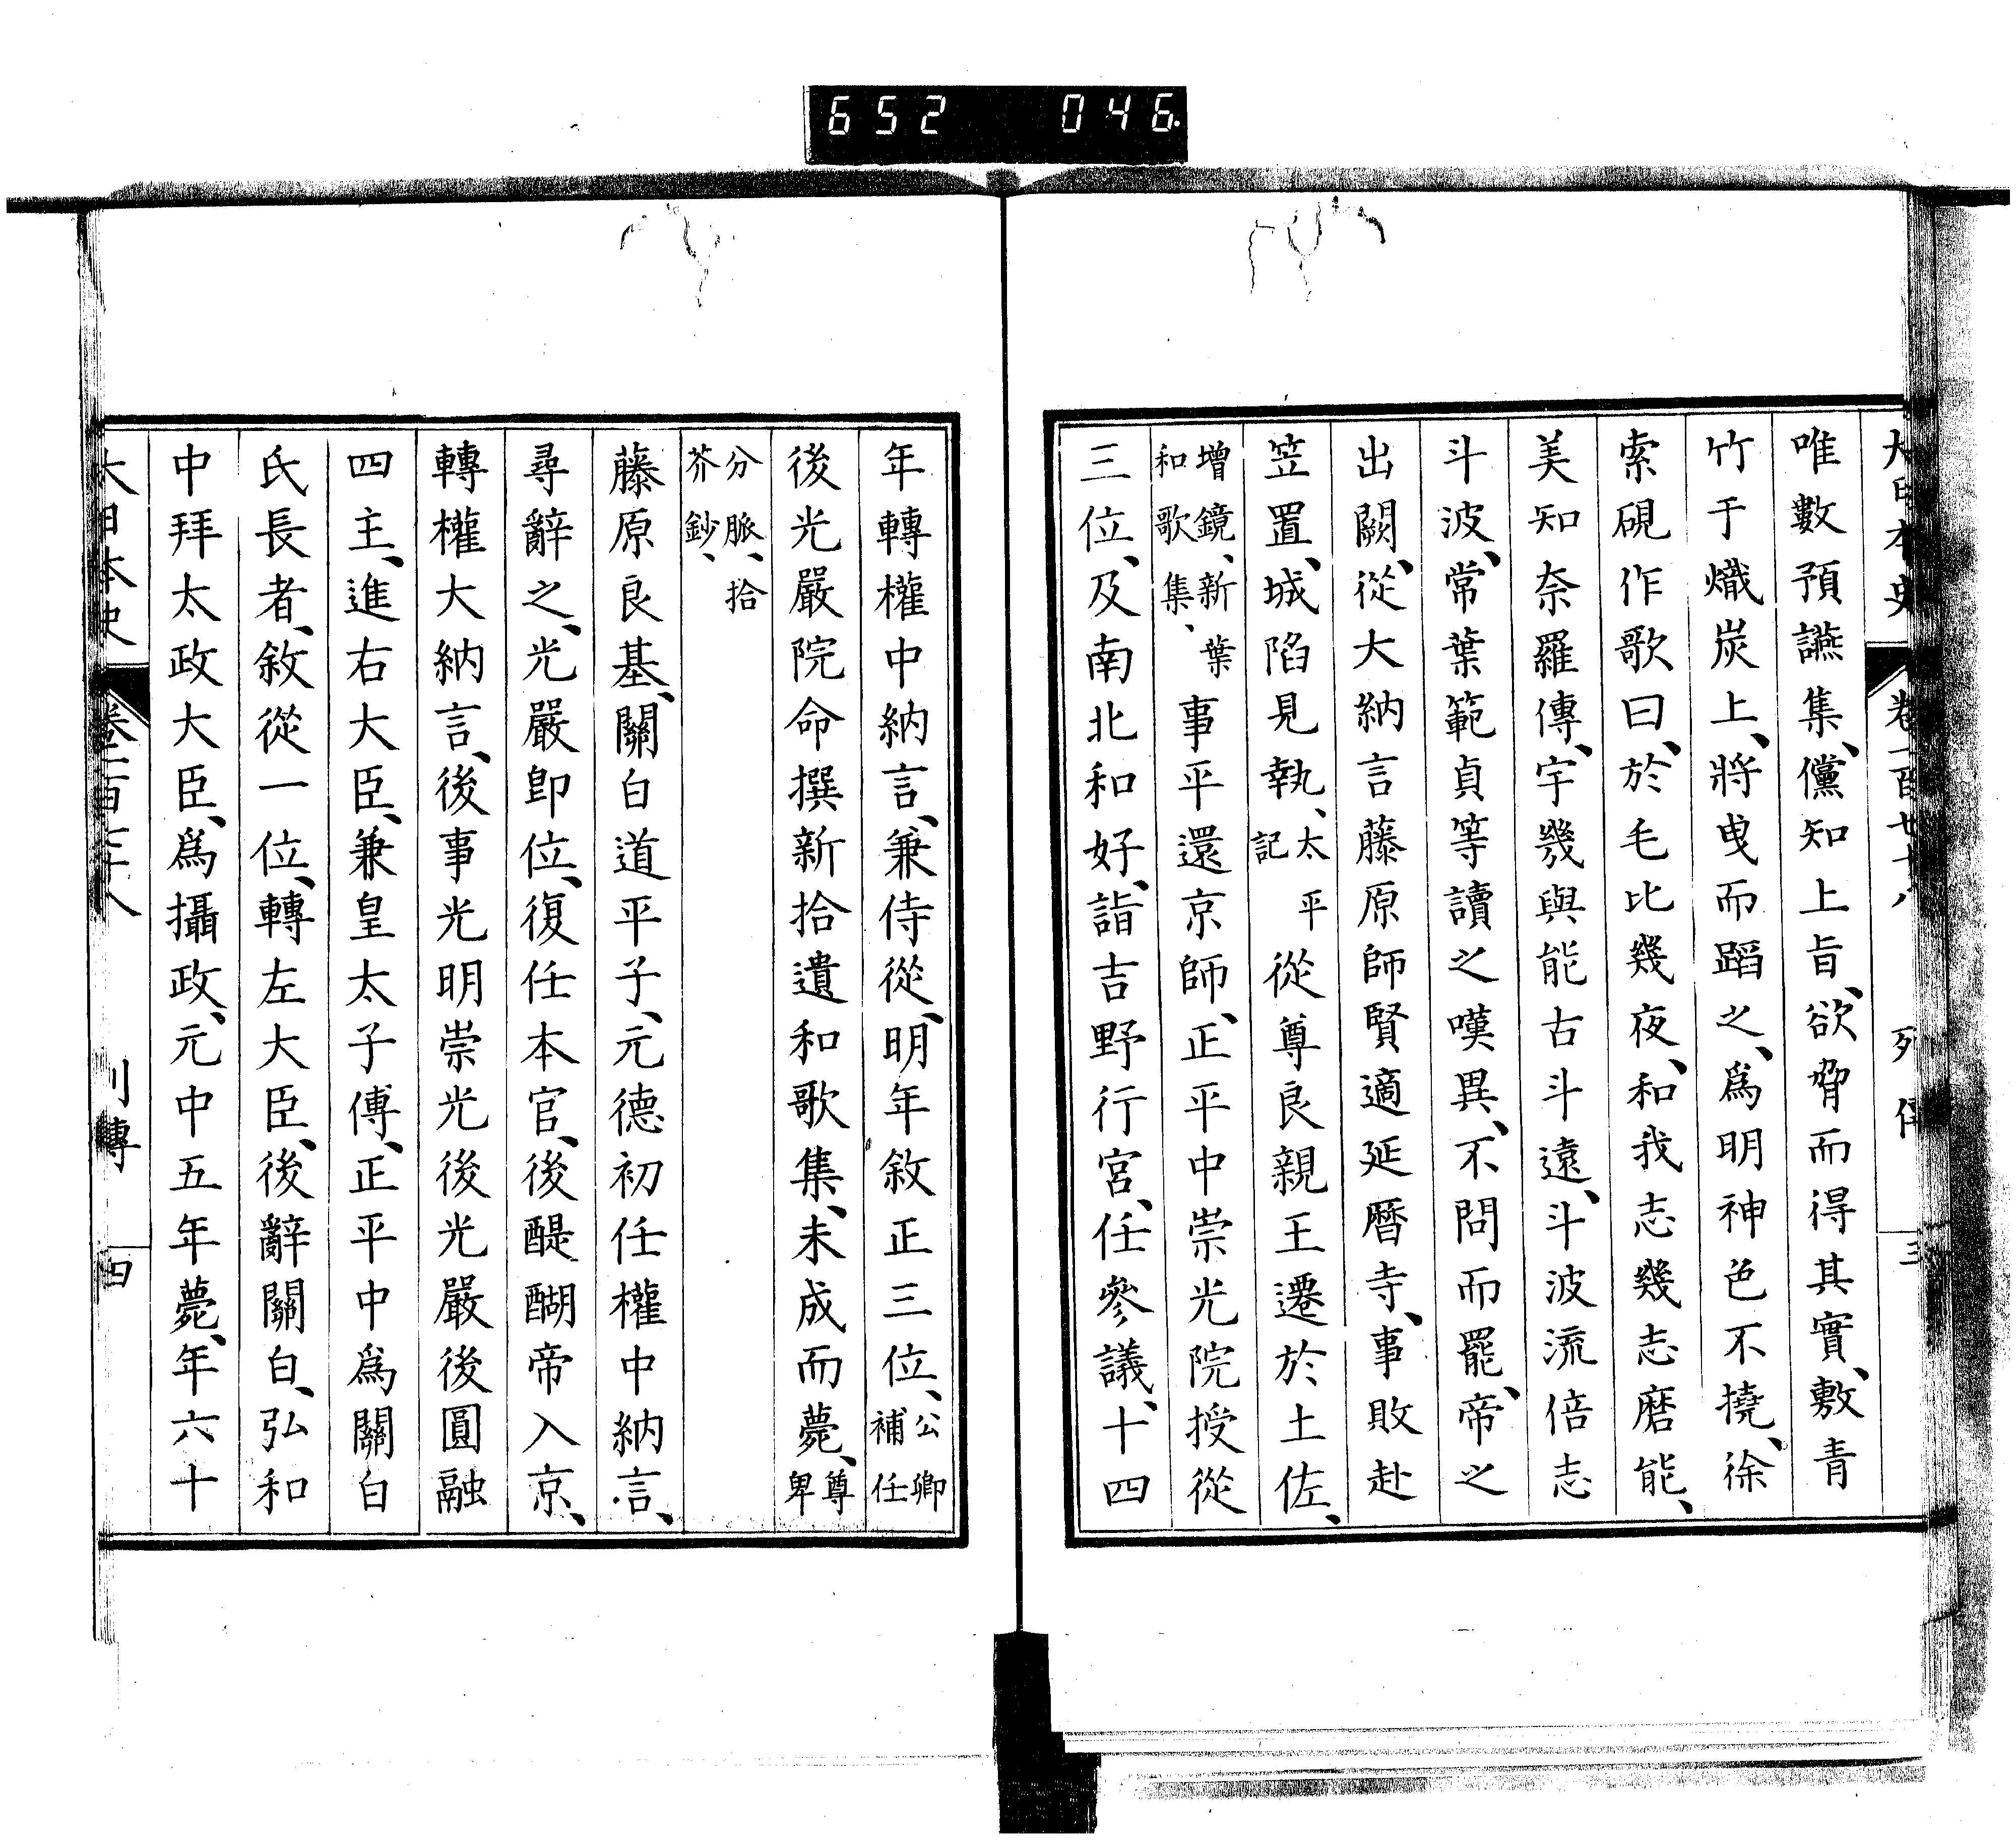 652 046.
唯數預讌集、儻知上旨、欲脅而得其實、敷青
竹于熾炭上、將曳而蹈之、爲明神色不撓、徐
索硯作歌曰、於毛比幾夜、和我志幾志磨能、
美知奈羅傳、宇幾與能古斗遠、斗波流倍志
斗波、常葉範貞等讀之嘆異、不問而罷、帝之
出闕、從大納言藤原師賢適延曆寺、事敗赴
笠置、城陷見執、太平記從尊良親王遷於土佐、
增鏡、新葉和歌集、事平還京師、正平中崇光院授從
三位、及南北和好、詣吉野行宮、任參議、十四
年轉權中納言、兼侍從、明年敘正三位、公卿補任
後光嚴院命撰新拾遺和歌集、未成而薨、尊卑
分脈、拾芥鈔、
藤原良基、關白道平子、元德初任權中納言、
尋辭之、光嚴卽位、復任本官、後醍醐帝入京、
轉權大納言、後事光明崇光後光嚴後圓融
四主、進右大臣、兼皇太子傅、正平中爲關白
氏長者、敘從一位、轉左大臣、後辭關白、弘和
中拜太政大臣、爲攝政、元中五年薨、年六十
四